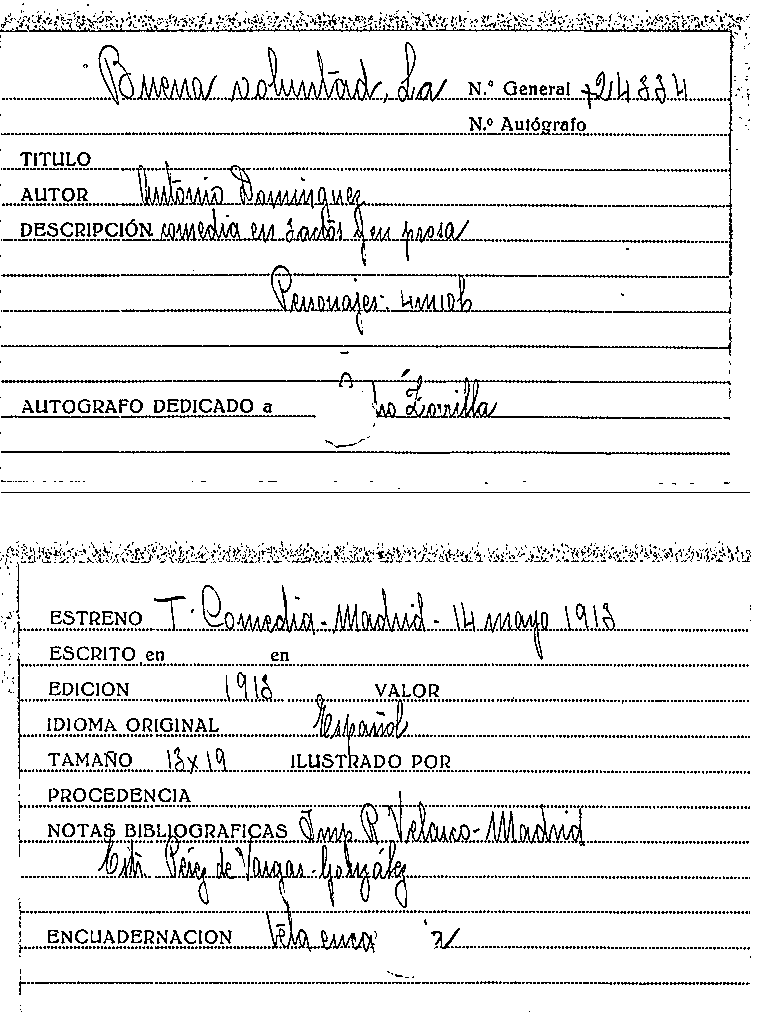 Buena voluntad, La N.º General 
N.º Autógrafo
TITULO
AUTOR Antonio Dominguez
DESCRIPCIÓN comedia en 3 actos y en prosa
Personajes:
AUTOGRAFO DEDICADO a Zorrilla
ESTRENO T. Comedia - Madrid - 14 mayo 1913
ESCRITO en en
EDICION 1913 VALOR
IDIOMA ORIGINAL Español
TAMAÑO 13x19 ILUSTRADO POR
PROCEDENCIA
NOTAS BIBLIOGRAFICAS Imp. R Velasco - Madrid
Pérez de Vargas - González
ENCUADERNACION Tela